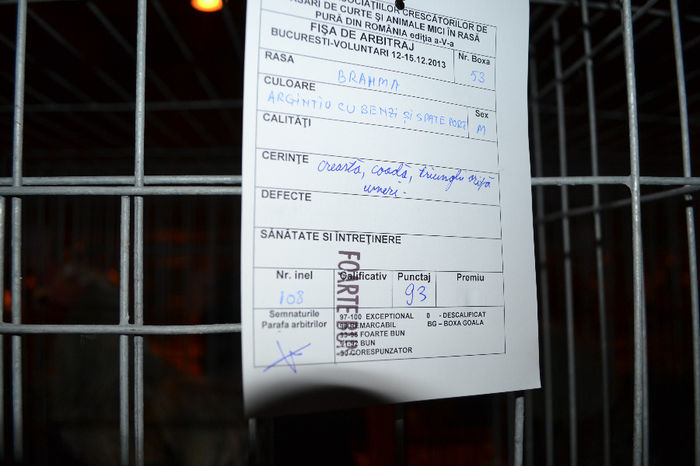 SOCIAȚIILOR CRESCĂTORILOR DE
SĂRI DE CURTE ȘI ANIMALE MICI ÎN RASĂ
PURĂ DIN ROMÂNIA ediția a-V-a
FIȘA DE ARBITRAJ
BUCURESTI-VOLUNTARI 12-15.12.2013
Nr. Boxa
53
RASA
BRAHMA
CULOARE
ARGINTIU CU BENZI ȘI SPATE PORT
Sex
M
CALITĂȚI
CERINȚE creastă, coadă, triunghi aripă
umeri.
DEFECTE
SĂNĂTATE SI ÎNTREȚINERE
Nr. inel Calificativ Punctaj Premiu
108 FOARTE BUN 93
Semnaturile
Parafa arbitrilor
97-100 EXCEPTIONAL 0 - DESCALIFICAT
REMARCABIL BG – BOXA GOALA
FOARTE BUN
BUN
CORESPUNZATOR